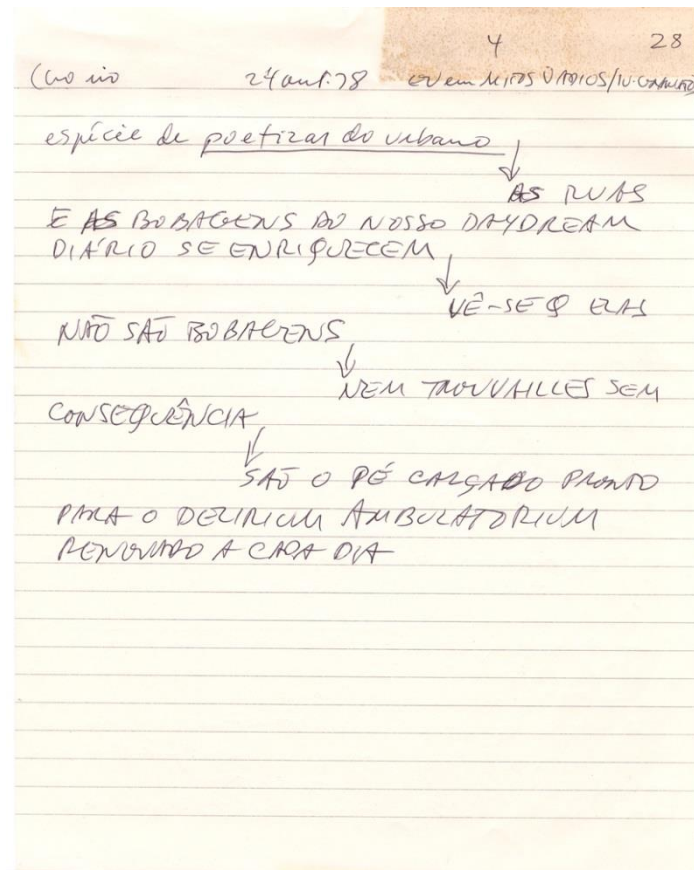 4 28
24 out. 78 EU em MITOS VADIOS/IV.
espécie de poetizar do urbano ↓
AS RUAS
E AS BOBAGENS DO NOSSO DAYDREAM
DIÁRIO SE ENRIQUECEM ↓
VÊ-SE Q ELAS
NÃO SÃO BOBAGENS ↓
NEM TROUVAILLES SEM
CONSEQUÊNCIA ↓
SÃO O PÉ CALÇADO PRONTO
PARA O DELIRIUM AMBULATORIUM
RENOVADO A CADA DIA